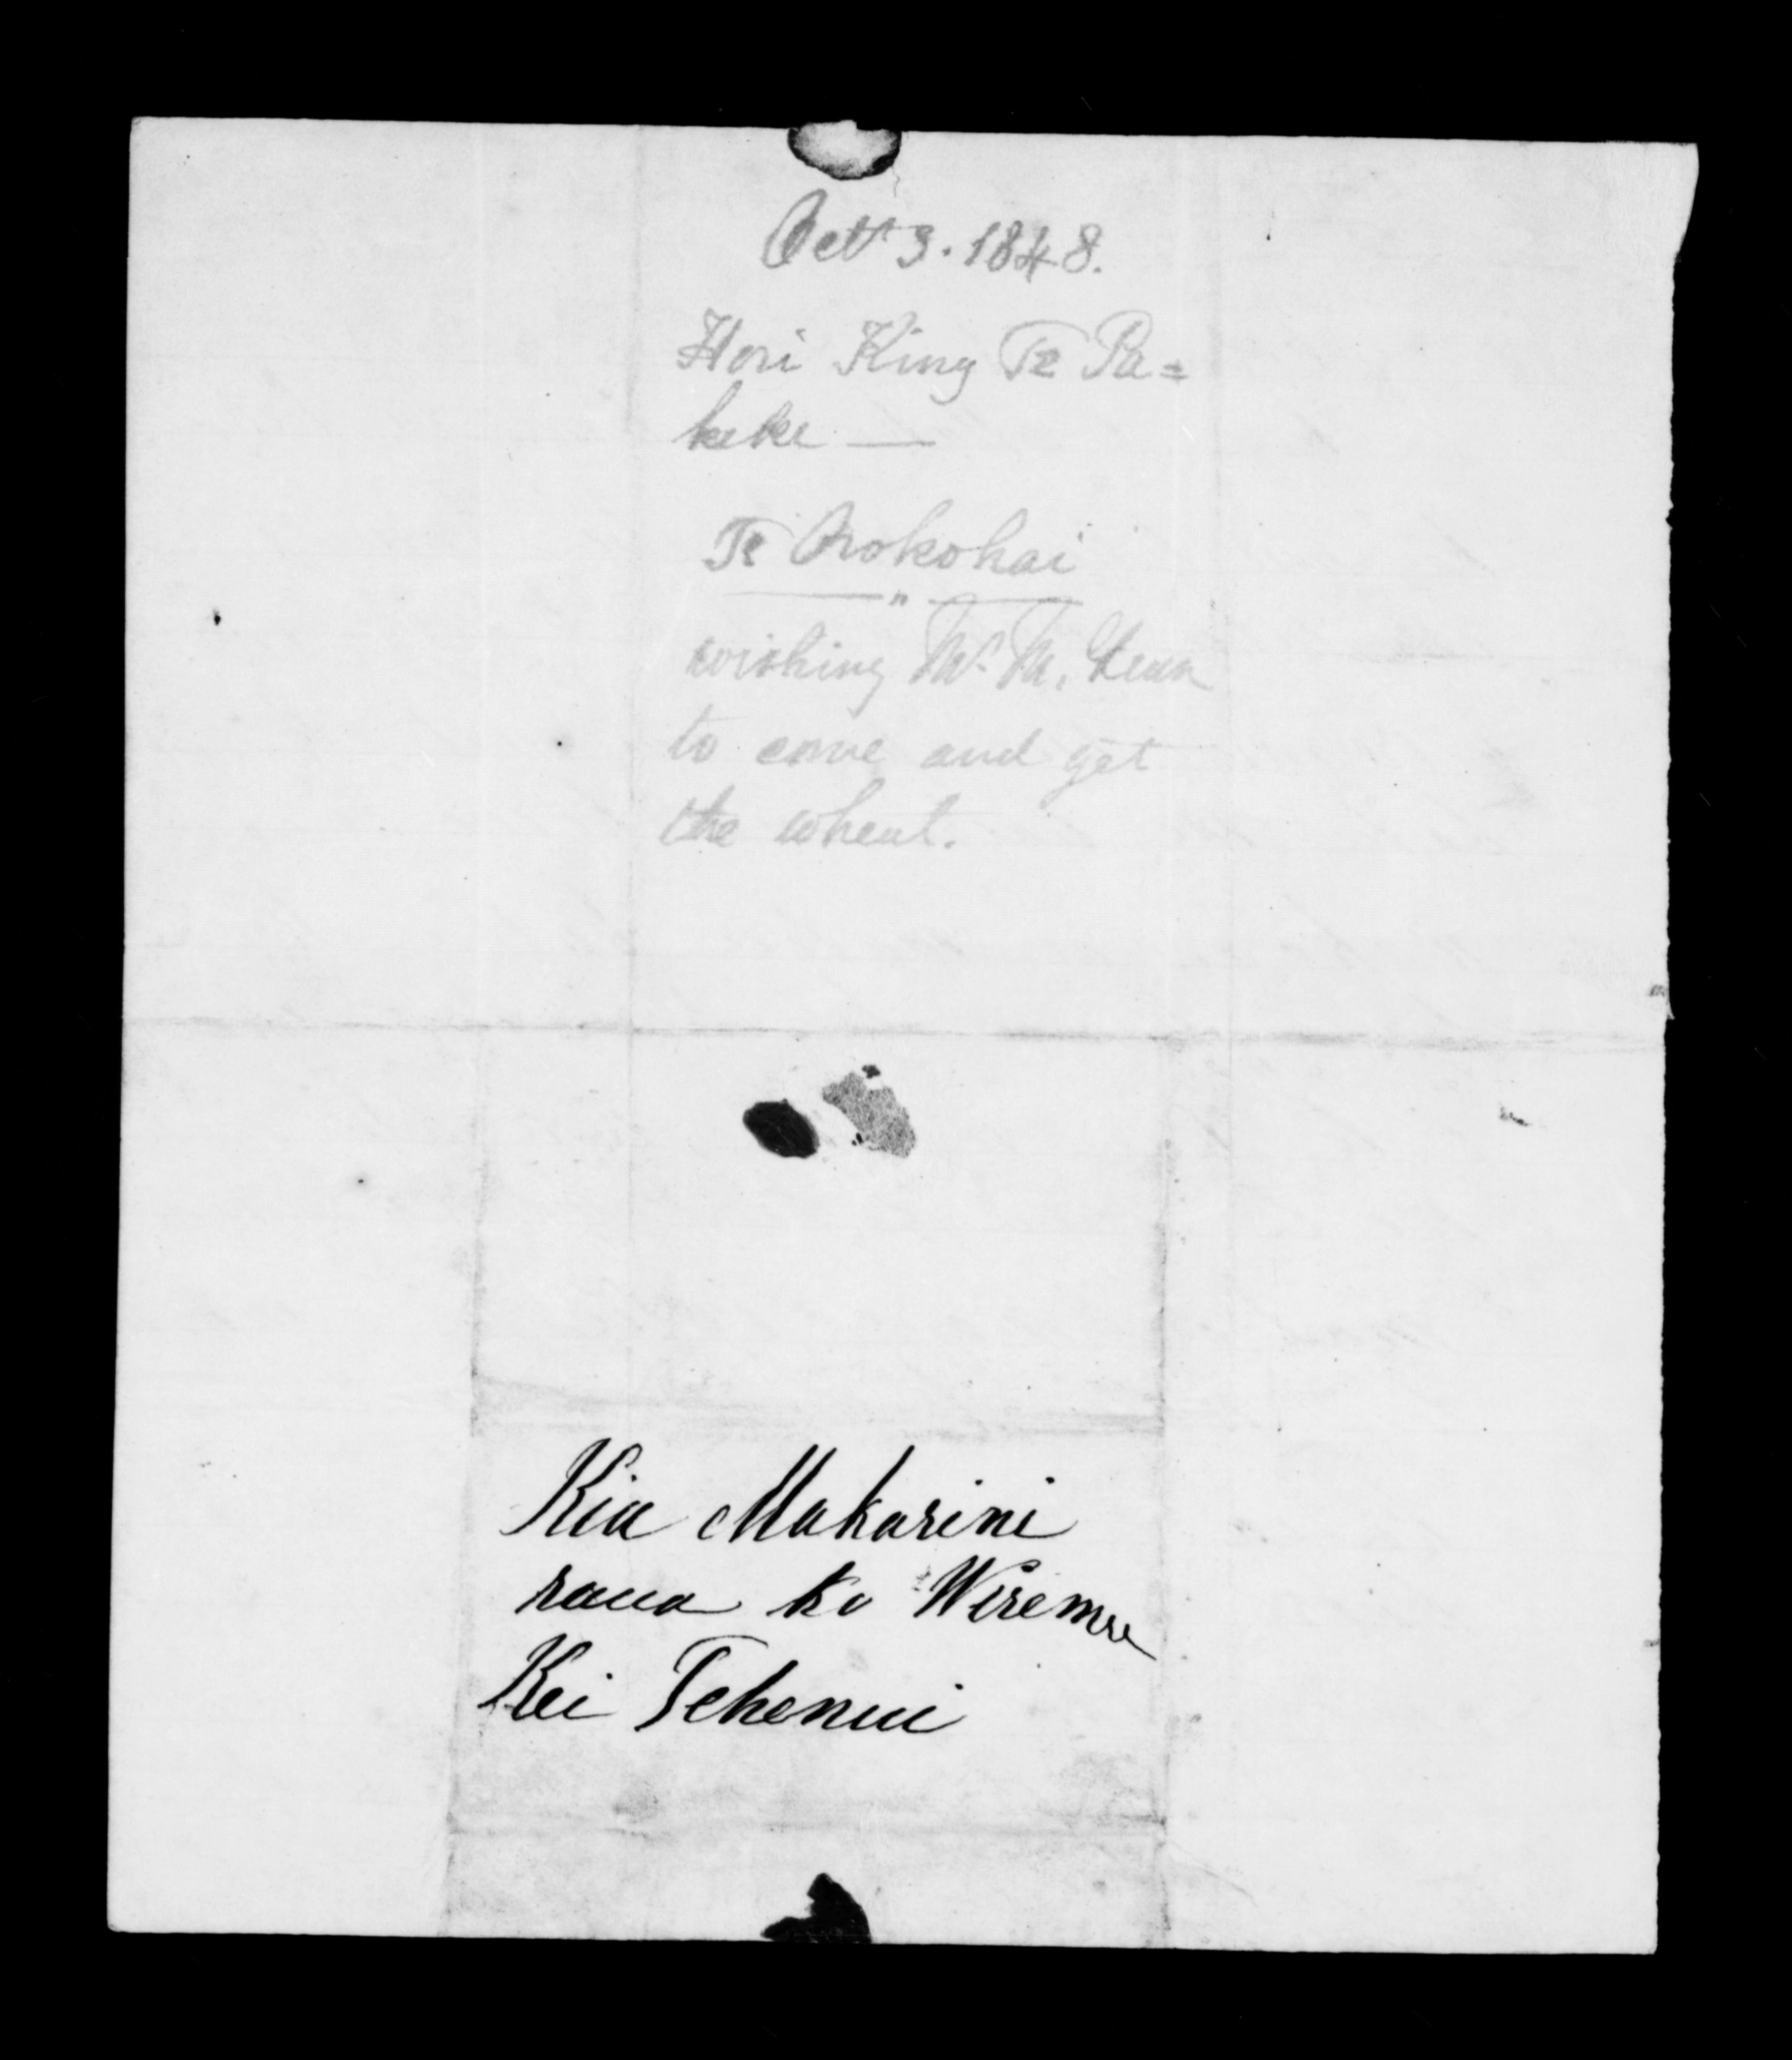 Octr 3. 1848.
Hori King Te Pa=
keke —
Te Orokohai
wishing Mr. M. Lean
to come and get
the wheat.
Kia Makarini
raua ko Wiremu
Kei Tehenui